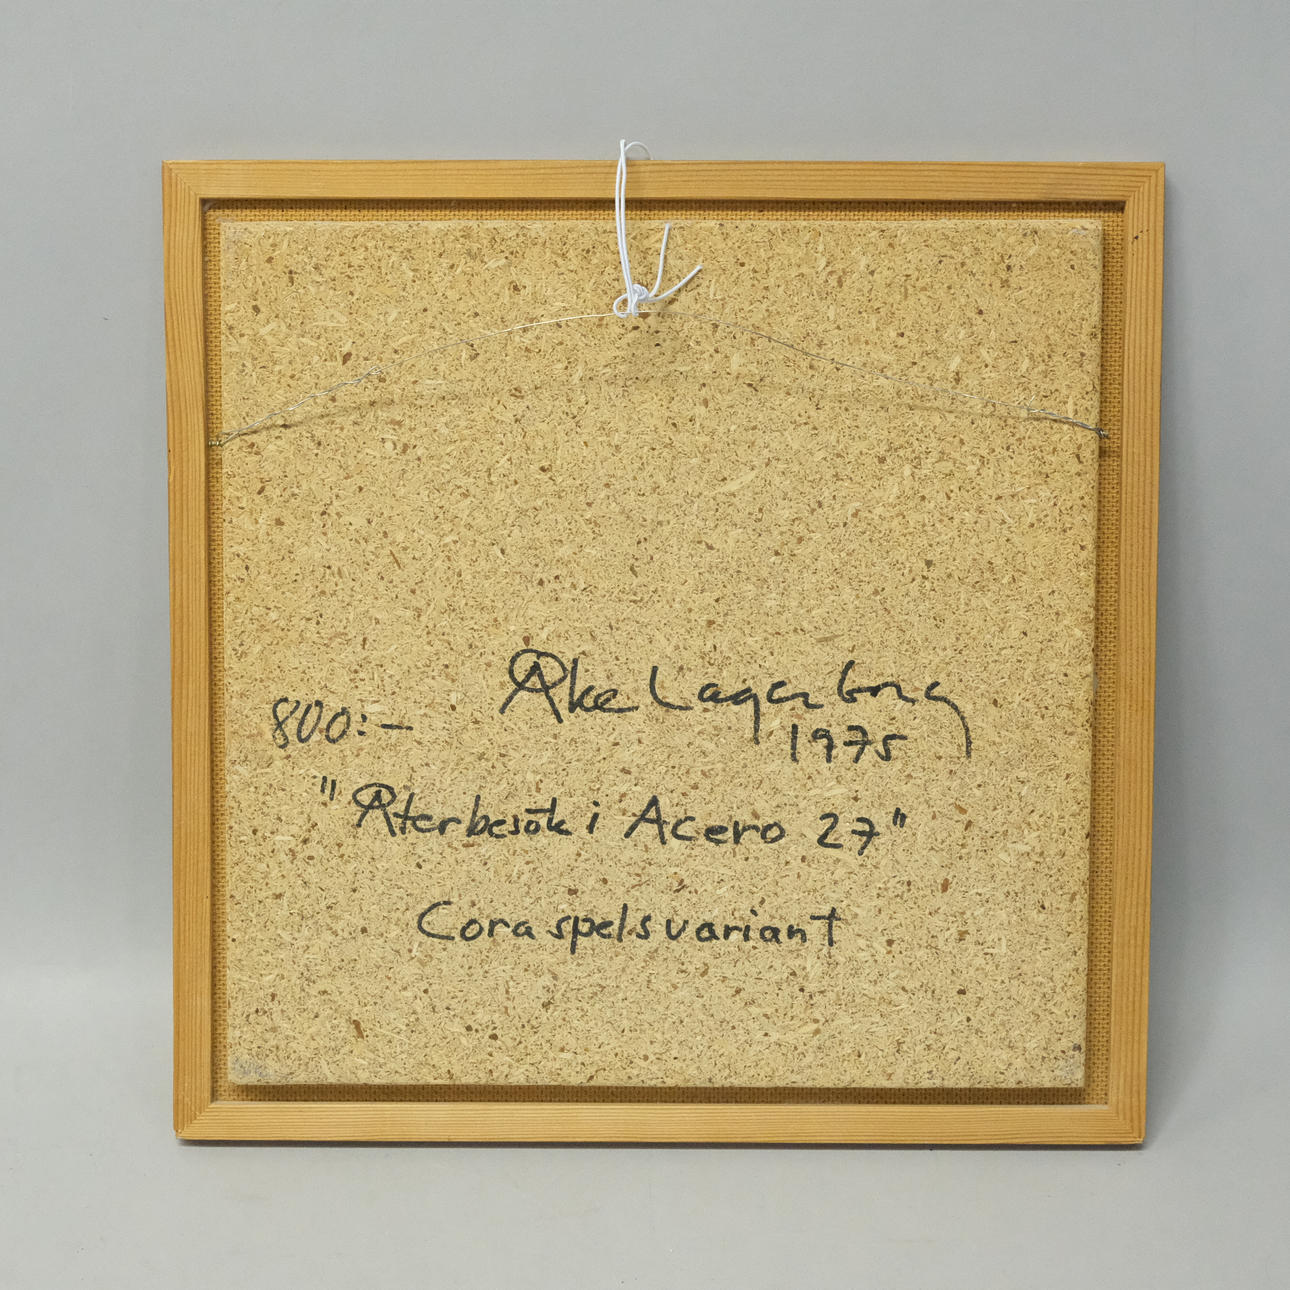 Åke Lagerborg
800:-
1975
"Återbesök i Acero 27"
Cora spelsvariant